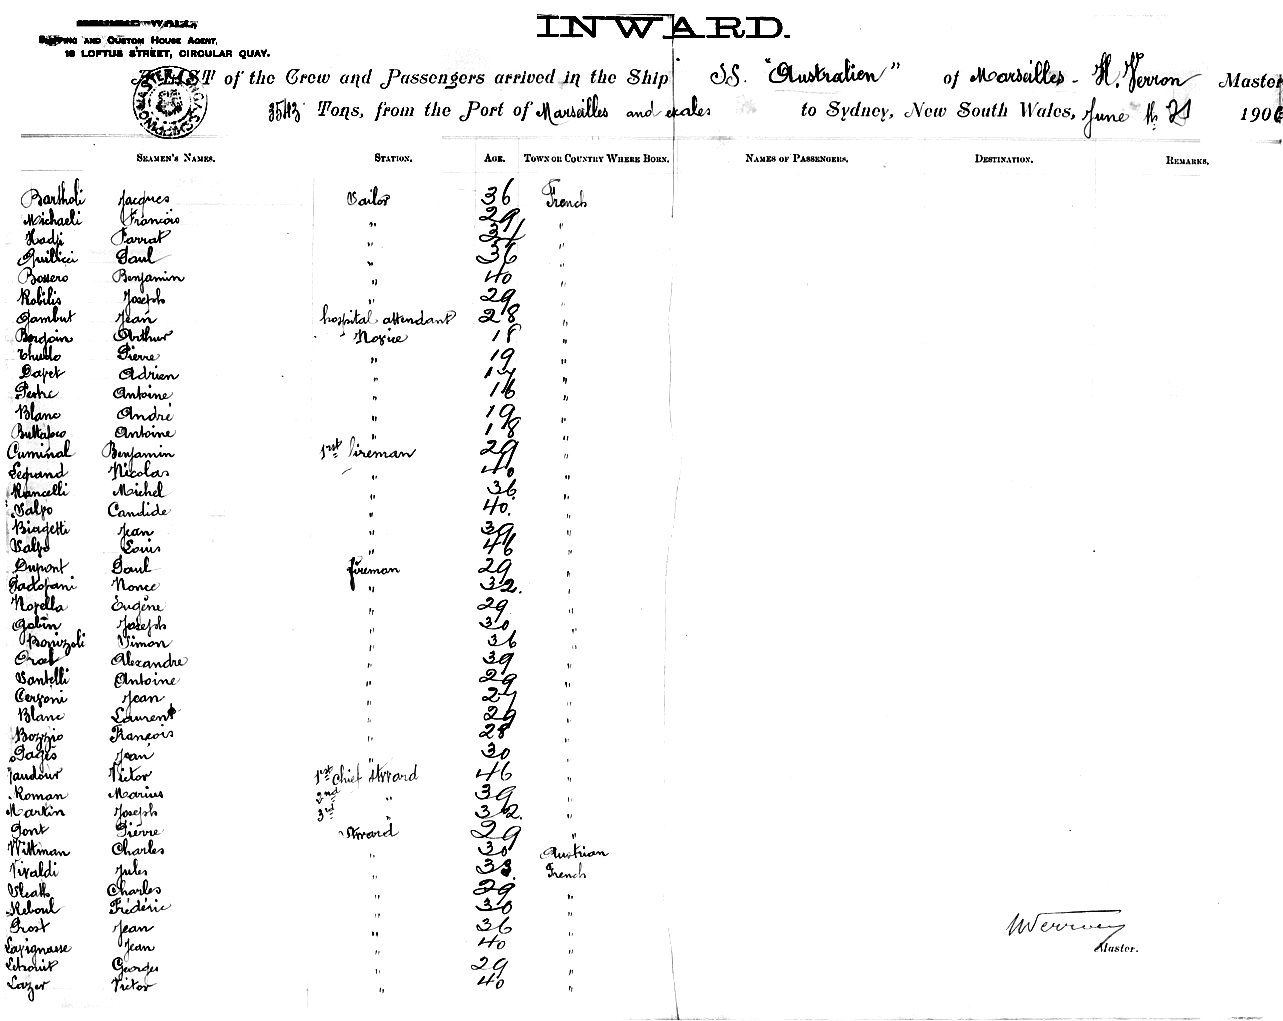 INWARD.
SHIPPING AND CUSTOM HOUSE AGENT,
18 LOFTUS STREET, CIRCULAR QUAY.
A LIST of the Crew and Passengers arrived in the Ship SS. "Australien" of Marseilles - H. Verron Master
3543 Tons, from the Port of Marseilles and escales to Sydney, New South Wales, June th 21 190
SEAMEN'S NAMES. STATION. AGE. TOWN OR COUNTRY WHERE BORN. NAMES OF PASSENGERS. DESTINATION. REMARKS.
Bartholi Jacques Sailor 36 French
Michaeli Francois " 29 "
Hadji Farrat " "
Quilici Paul " 36 "
Bossero Benjamin " 40 "
Robilis Joseph " 29 "
Gambut Jean hospital attendant 28 "
Arthur Novice 18 "
Pierre " 19 "
Dapet Adrien " 17 "
Antoine " 16 "
Blanc André " 19 "
Antoine " 18 "
Cuminal Benjamin 1rst fireman 29 "
Legrand Nicolas " 40 "
Rancelli Michel " 36 "
Salpo Candide " 40. "
Biagetti Jean " 39 "
Salpo Louis " 46 "
Dupont Paul fireman 29 "
Padovani Nonce " 32. "
Novella Eugène " 29 "
Gobin Joseph " 30 "
Bonizoli Simon " 36 "
Alexandre " 39 "
Santelli Antoine " 29 "
Cerzoni Jean " 27 "
Blanc Laurent " 29 "
Bozzio Francois " 28 "
Pagès Jean " 30 "
Jaudour Victor 1rst Chief steward 46 "
Roman Marius 2nd " 39 "
Martin Joseph 3rd " 32. "
Pont Pierre Steward 29 "
Wittman Charles " 30 Austrian
Vivaldi Jules " 33. French
Charles " 29 "
Reboul Frédéric " 30 "
Prost Jean " 36 "
Lavignasse Jean " 40 "
Georges " 29 "
Lazer Victor " 40 "
Master.